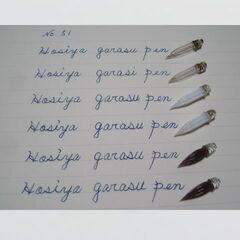 No. 51
Hosiya garasu pen
Hosiya garasi pen
Hosiya garasu pen
Hosiya garasu pen
Hosiya garasu pen
Hosiya garasu pen